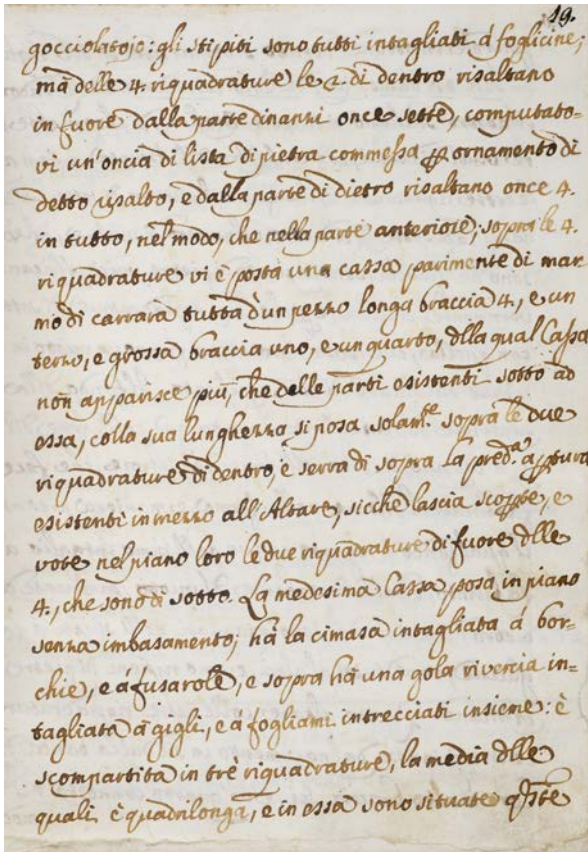 19.
gocciolatojo: gli stipiti sono tutti intagliati á foglicine;
mà delle 4 riquadrature le 2. di dentro risaltano
in fuore dalla parte dinanzi once sette, computato-
vi un'oncia di lista di pietra commessa p ornamento di
detto risalto, e dalla parte di dietro risaltano once 4.
in tutto, nel modo, che nella parte anteriore; sopra le 4.
riquadrature vi è posta una cassa parimente di mar
mo di carrara tutta d'un pezzo longa braccia 4., e un
terzo, e grossa braccia uno, e un quarto, dlla qual Cassa
non apparisce più, che delle parti esistenti sotto ad
essa, colla sua lunghezza si posa, solam.te sopra le due
riquadrature di dentro, e serra di sopra la pred.a apptura
esistente in mezzo all'Altare, sicche lascia scopte, e
vote nel piano loro le due riquadrature di fuore dlle
4., che sono di sotto. La medesima Cassa posa in piano
senza imbasamento; hà la cimasa intagliata á bor-
chie, e á fusarole, e sopra hà una gola rivercia in=
tagliata à gigli, e á fogliami intrecciati insieme: è
scompartita in trè riquadrature, la media dlle
quali è quadrilonga, e in essa sono situate qste